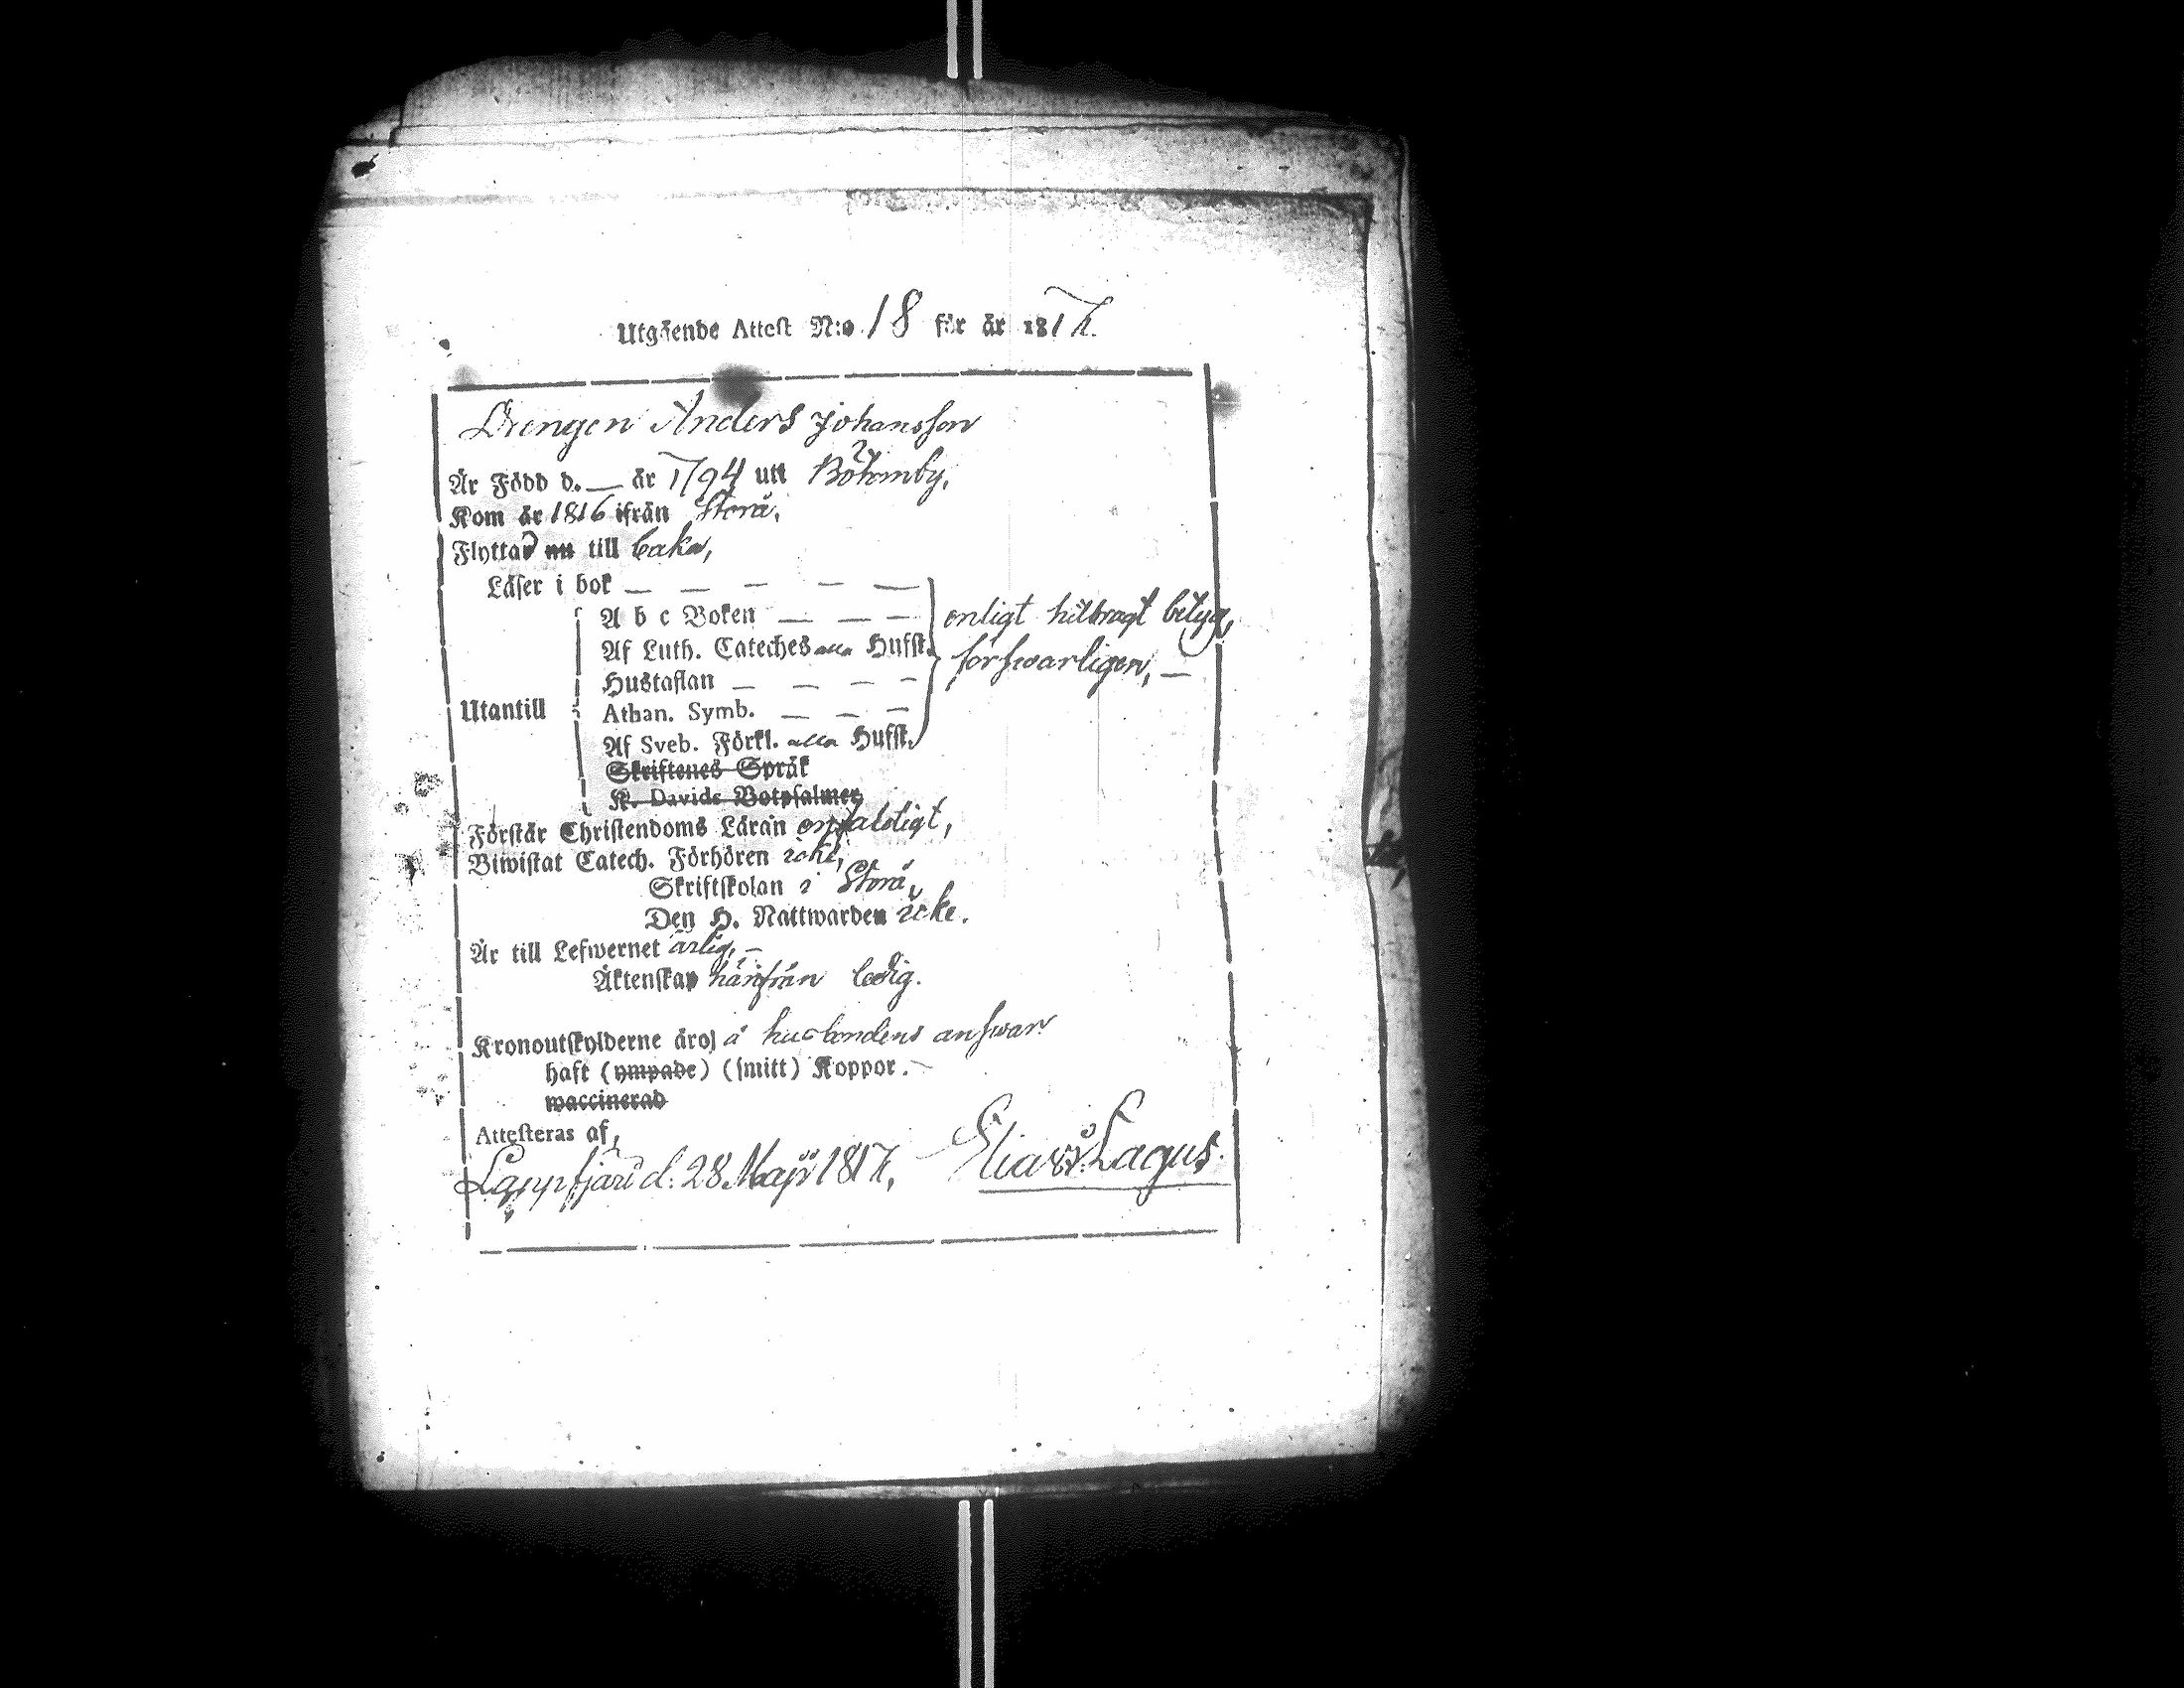 Utgående Attest N:o 18 för år 1817.
Drengen Anders Johansson
Är Född d. — år 1794 uti
Kom år 1816 ifrån Storå,
Flyttar nu till baka,
Läser i bok — — — — —
A b c Boken — — — enligt hitbragt betyg,
Af Luth. Cateches alla Hufst. förswarligen, —
Hustaflan — — — —
Utantill Athan. Symb. — — —
Af Sveb. Förkl. alla Hufst.
Skriftenes Språk
K. Davids Botpsalmer
Förstår Christendoms Läran enfaldigt,
Biwistat Catech. Förhören icke,
Skriftskolan i Storå,
Den H. Nattwarden icke.
Är till Lefwernet ärlig, —
Äktenskap härifrån ledig.
Kronoutskylderne äro å husbondens answar
haft (ympade) (smitt) Koppor. —
waccinerad
Attesteras af,
Lappfjärd d. 28 Maji 1817, Elias Lagus.